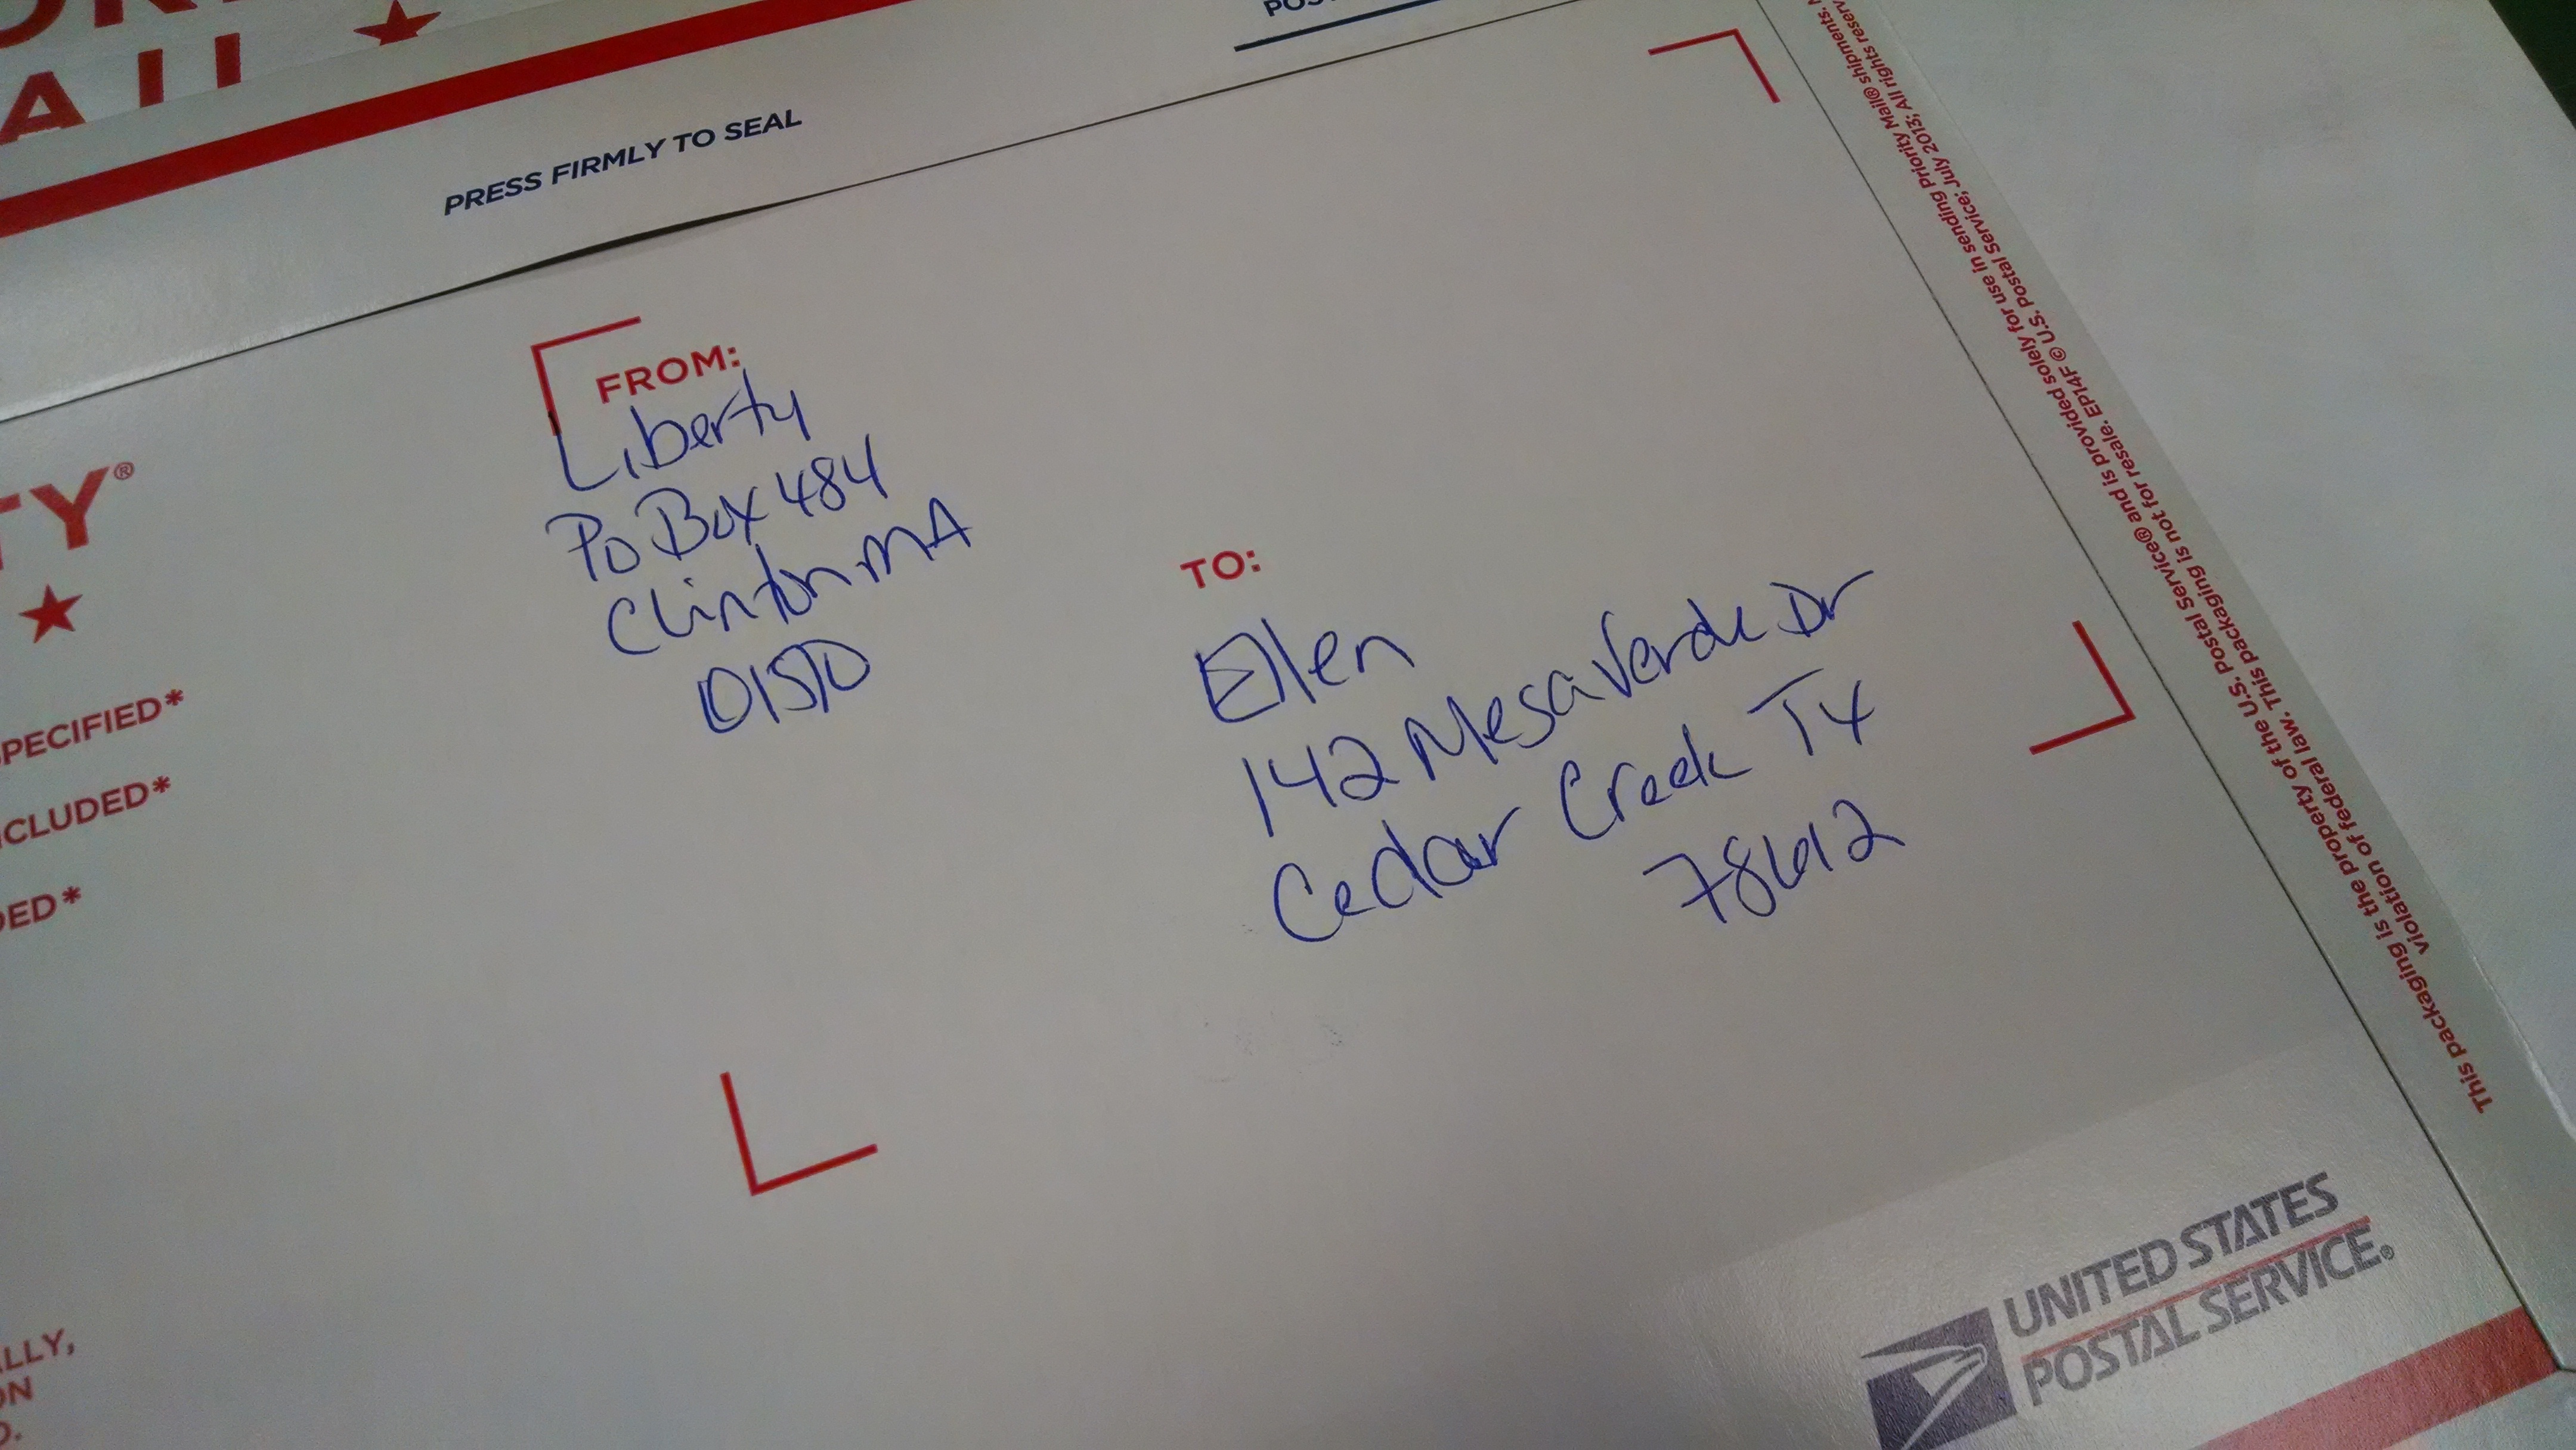 AIL
POS
PRESS FIRMLY TO SEAL
FROM:
Liberty
Po Box 484
Clinton MA
01510
TO:
Ellen
142 Mesa Verde Dr
Cedar Creek TX
78612
TY®
PECIFIED*
CLUDED*
DED*
LLY,
ON
This packaging is the property of the U.S. Postal Service® and is provided solely for use in sending Priority Mail® shipments.
violation of federal law. This packaging is not for resale. EP14F © U.S. Postal Service; July 2013; All rights reserv
UNITED STATES
POSTAL SERVICE®